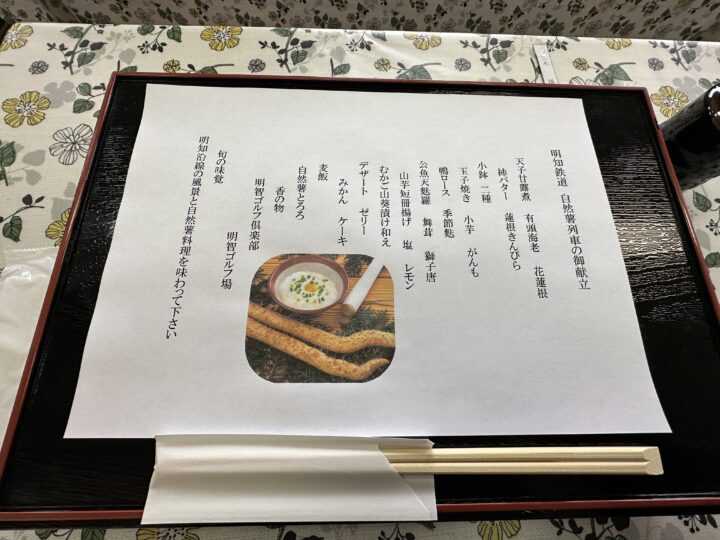 明知鉄道　自然薯列車の御献立
天子竹露煮　有頭海老　花蓮根
柿バター　蓮根きんぴら
小鉢　二種
玉子焼き　小芋　がんも
鴨ロース　季節麩
公魚天麩羅　舞茸　獅子唐
山芋短冊揚げ　塩　レモン
むかご山葵漬け和え
デザート　ゼリー
みかん　ケーキ
麦飯
自然薯とろろ
香の物
明智ゴルフ倶楽部　明智ゴルフ場
旬の味覚
明知沿線の風景と自然薯料理を味わって下さい